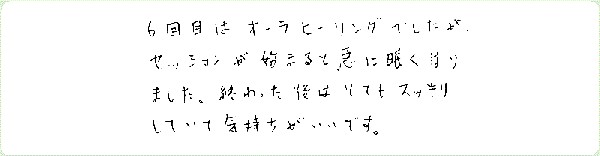 6回目はオーラヒーリングでしたが、
セッションが始まると急に眠くなり
ました。終わった後はとてもスッキリ
していて気持ちがいいです。